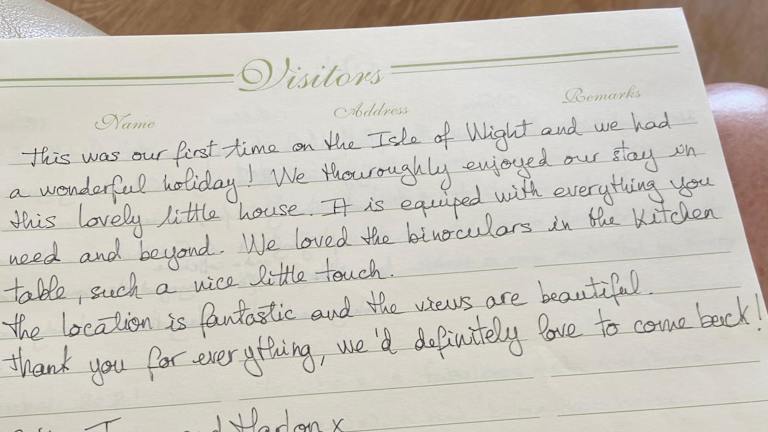 Visitors
Name Address Remarks
This was our first time on the Isle of Wight and we had
a wonderful holiday! We thouroughly enjoyed our stay in
this lovely little house. It is equiped with everything you
need and beyond. We loved the binoculars in the kitchen
table, such a nice little touch.
The location is fantastic and the views are beautiful.
Thank you for everything, we'd definitely love to come back!
x